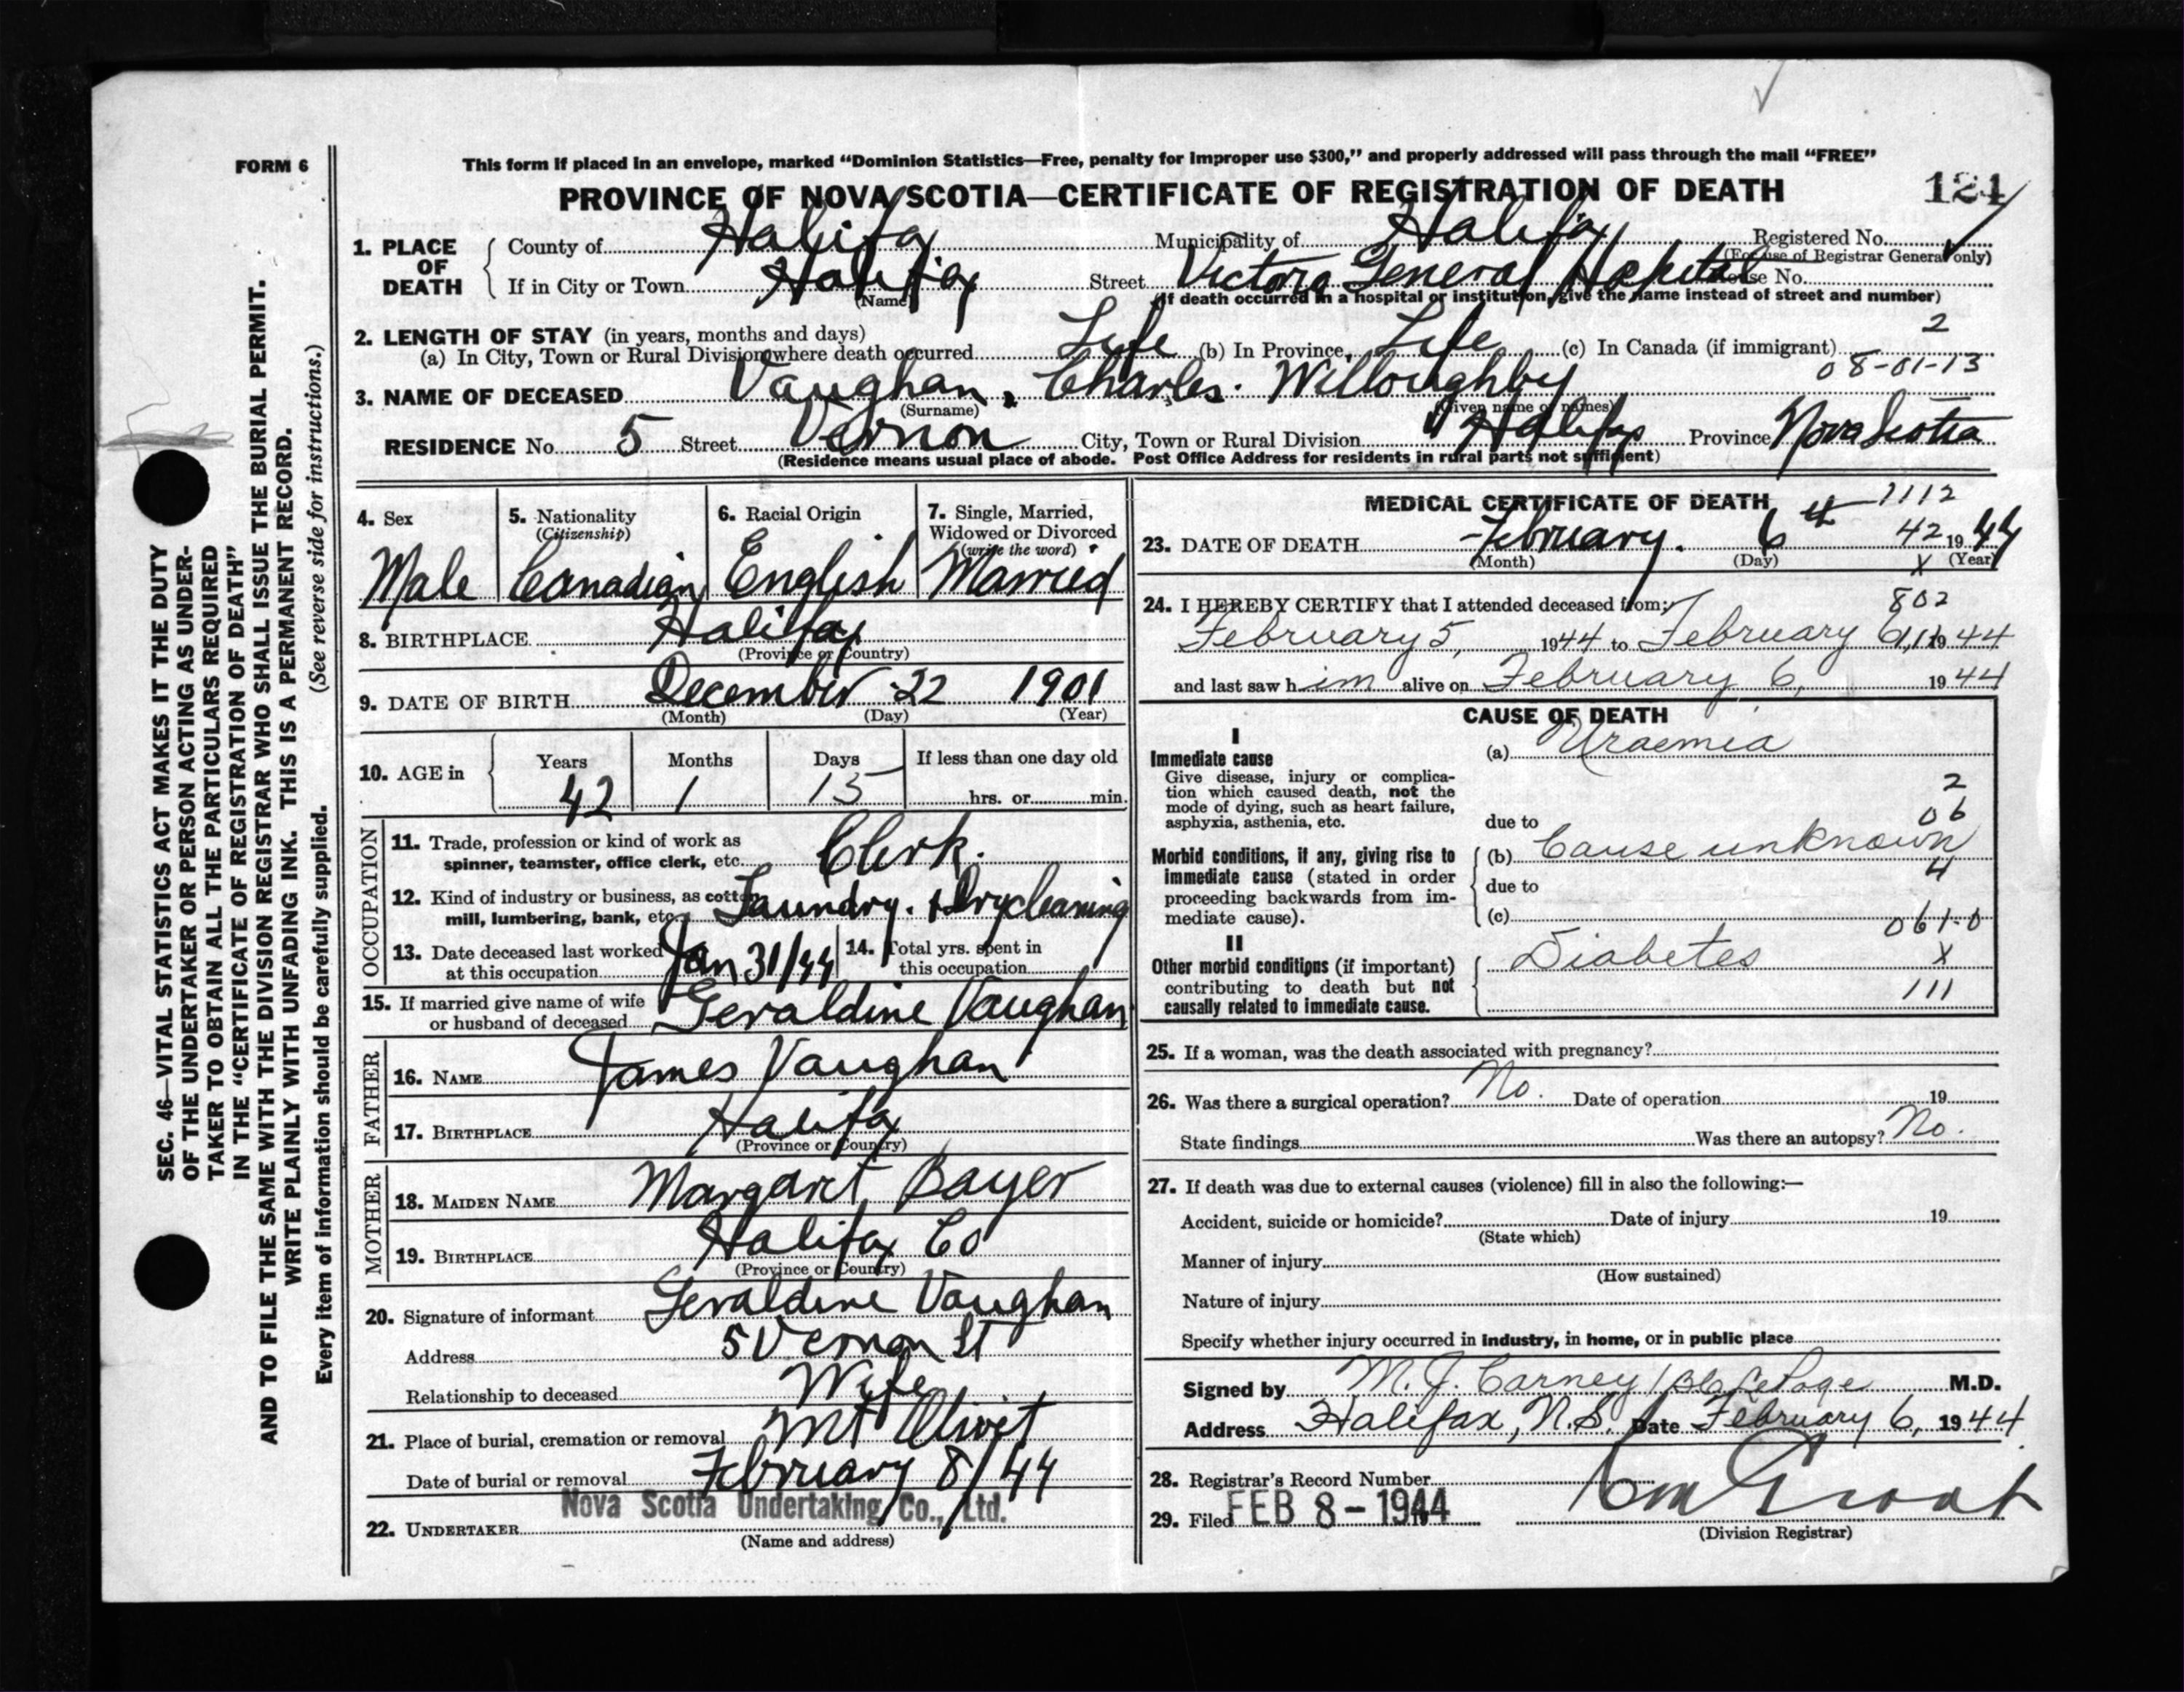 FORM 6
This form if placed in an envelope, marked “Dominion Statistics—Free, penalty for improper use $300,” and properly addressed will pass through the mail “FREE”
PROVINCE OF NOVA SCOTIA—CERTIFICATE OF REGISTRATION OF DEATH
121
1. PLACE OF DEATH
County of Halifax Municipality of Halifax Registered No.
(For use of Registrar General only)
If in City or Town Halifax Street Victoria General Hospital House No.
(Name) (If death occurred in a hospital or institution, give the name instead of street and number)
2. LENGTH OF STAY (in years, months and days)
2
(a) In City, Town or Rural Division where death occurred Life (b) In Province Life (c) In Canada (if immigrant)
08-01-13
3. NAME OF DECEASED Vaughan, Charles. Willoughby
(Surname) (Given name or names)
RESIDENCE No. 5 Street Vernon City, Town or Rural Division Halifax Province Nova Scotia
(Residence means usual place of abode. Post Office Address for residents in rural parts not sufficient)
4. Sex
Male
5. Nationality
(Citizenship)
Canadian
6. Racial Origin
English
7. Single, Married,
Widowed or Divorced
(write the word)
Married
8. BIRTHPLACE Halifax
(Province or Country)
9. DATE OF BIRTH December 22 1901
(Month) (Day) (Year)
10. AGE in
Years Months Days If less than one day old
42 1 15 hrs. or min.
OCCUPATION
11. Trade, profession or kind of work as
spinner, teamster, office clerk, etc. Clerk.
12. Kind of industry or business, as cotton
mill, lumbering, bank, etc. Laundry. + Drycleaning
13. Date deceased last worked
at this occupation Jan 31/44
14. Total yrs. spent in
this occupation
15. If married give name of wife
or husband of deceased Geraldine Vaughan
FATHER
16. NAME James Vaughan
17. BIRTHPLACE Halifax
(Province or Country)
MOTHER
18. MAIDEN NAME Margaret Bayer
19. BIRTHPLACE Halifax Co
(Province or Country)
20. Signature of informant Geraldine Vaughan
Address 5 Vernon St
Relationship to deceased Wife
21. Place of burial, cremation or removal Mt Olivet
Date of burial or removal February 8/44
Nova Scotia Undertaking Co., Ltd.
22. UNDERTAKER
(Name and address)
MEDICAL CERTIFICATE OF DEATH
1112
23. DATE OF DEATH February. 6th 42 1944
(Month) (Day) X (Year)
24. I HEREBY CERTIFY that I attended deceased from:
802
February 5, 1944 to February 6, 1944
and last saw him alive on February 6, 1944
CAUSE OF DEATH
I
Immediate cause
Give disease, injury or complica-
tion which caused death, not the
mode of dying, such as heart failure,
asphyxia, asthenia, etc.
(a) Uraemia
2
06
due to
Morbid conditions, if any, giving rise to
immediate cause (stated in order
proceeding backwards from im-
mediate cause).
(b) Cause unknown
4
due to
(c)
061-0
II
Other morbid conditions (if important)
contributing to death but not
causally related to immediate cause.
Diabetes X
111
25. If a woman, was the death associated with pregnancy?
26. Was there a surgical operation? No. Date of operation 19
State findings Was there an autopsy? No.
27. If death was due to external causes (violence) fill in also the following:—
Accident, suicide or homicide? Date of injury 19
(State which)
Manner of injury
(How sustained)
Nature of injury
Specify whether injury occurred in industry, in home, or in public place
Signed by M. J. Carney / LePage M.D.
Address Halifax, N.S. Date February 6, 1944
28. Registrar's Record Number
29. Filed FEB 8 - 1944
(Division Registrar)
SEC. 46—VITAL STATISTICS ACT MAKES IT THE DUTY
OF THE UNDERTAKER OR PERSON ACTING AS UNDER-
TAKER TO OBTAIN ALL THE PARTICULARS REQUIRED
IN THE “CERTIFICATE OF REGISTRATION OF DEATH”
AND TO FILE THE SAME WITH THE DIVISION REGISTRAR WHO SHALL ISSUE THE BURIAL PERMIT.
WRITE PLAINLY WITH UNFADING INK. THIS IS A PERMANENT RECORD.
Every item of information should be carefully supplied. (See reverse side for instructions.)